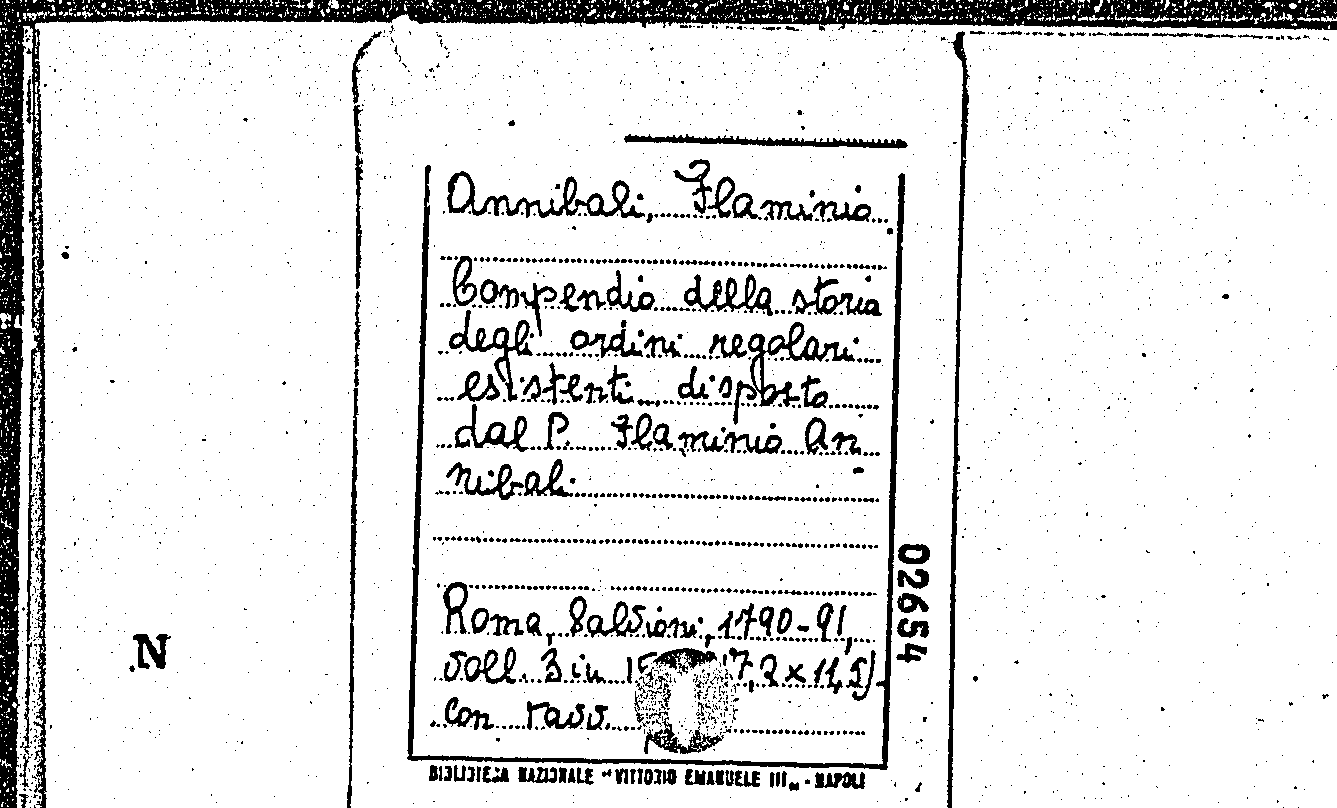 Annibali, Flaminio
Compendio della storia
degli ordini regolari
esistenti disposto
dal P. Flaminio An-
nibali
Roma, Salvioni, 1790-91,
voll. 3 in 7,2 x 11,5)
con tavv.
02654
N
BIBLIOTECA NAZIONALE "VITTORIO EMANUELE III„ - NAPOLI